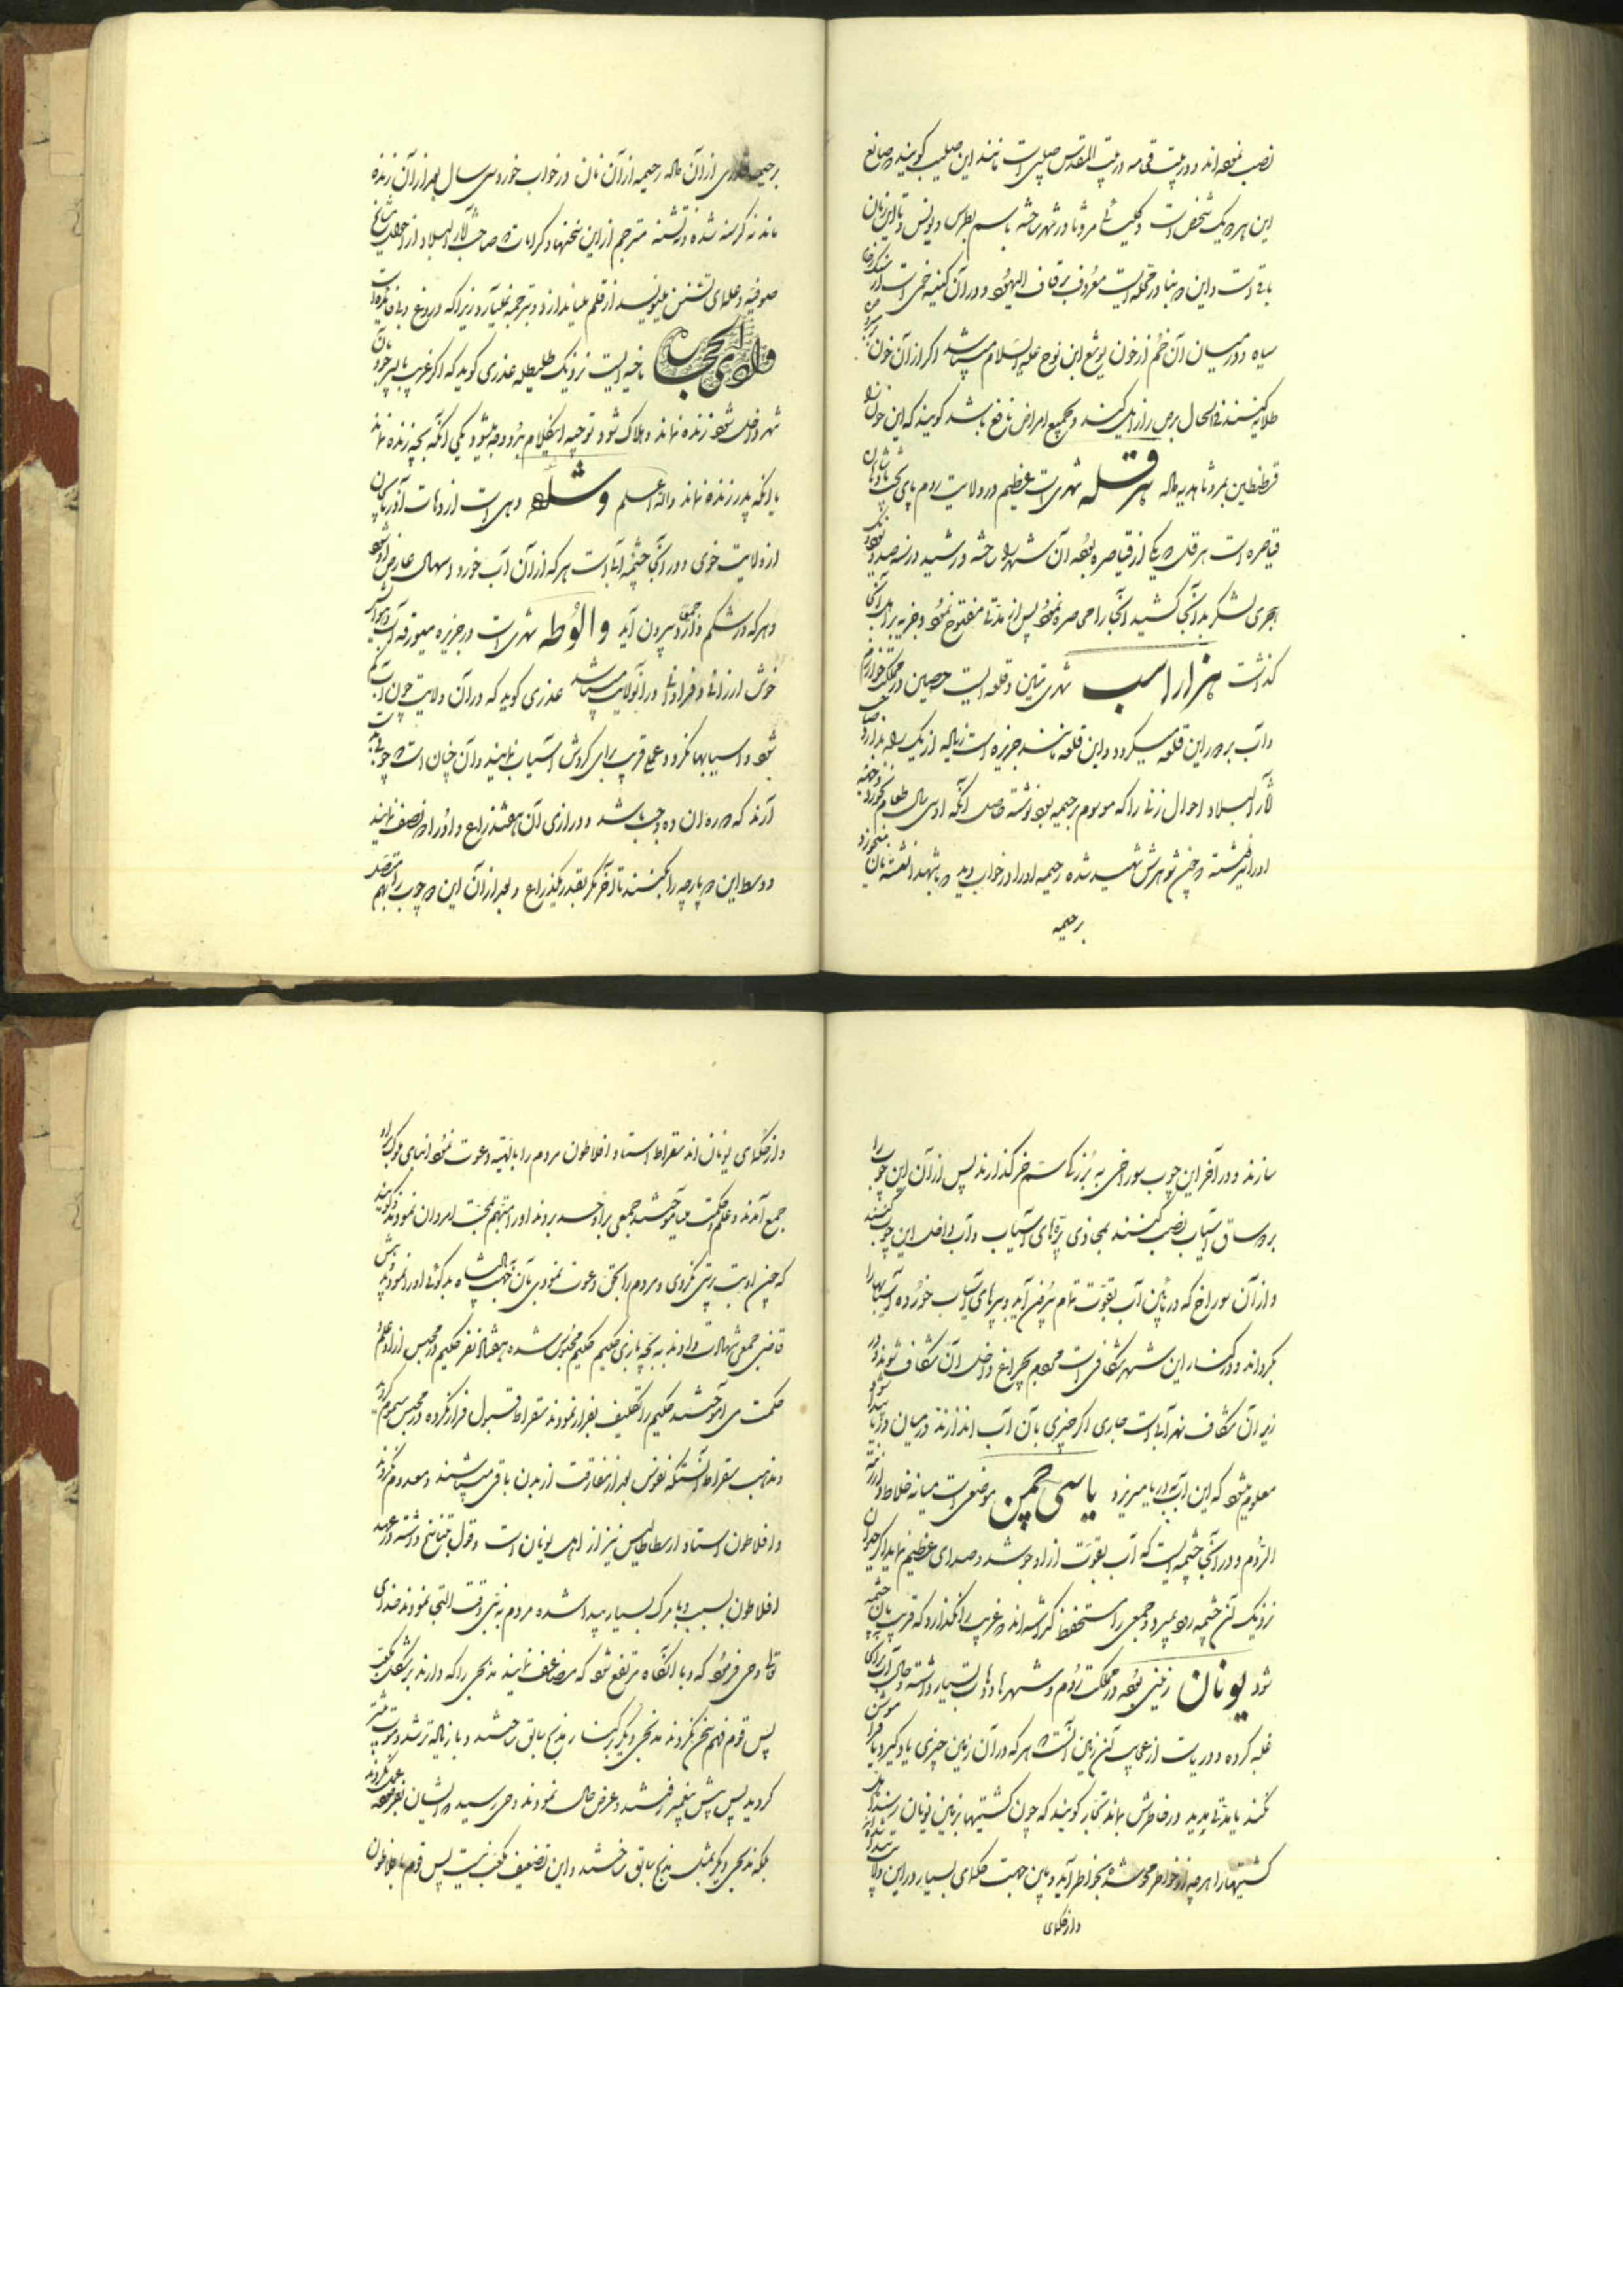 نصب نموده اند و در بیعت قمامه در بیت المقدس صلیبی است مانند این صلیب گویند صانع
این هر دو یک شخص است و کلیسائی مروثا در شهر ساخته باسم بطرس و یونس و تا این زمان
باقی است و این بنا در محله ایست معروف بزقاق الیهود و در آن کنیسه خمی است از سنک رخام
سیاه و در میان آن خم از خون یوشع ابن نون علیه السلام میباشد اگر از آن خون
طلا کنند فی الحال برص را زایل کند و بجمیع امراض نافع باشد گویند که این خون را
قسطنطین بمروثا هدیه داد هرقله شهری است عظیم در ولایت روم پای تخت پادشاهان
قیاصره است هرقل که یکی از قیاصره بوده آن شهر را ساخته و رشید در سنه صد و نود و یک
هجری لشکر بدانجا کشید آنجا را محاصره نموده پس از مدتی مفتوح نمود و جزیه بر اهل آنجا
گذاشت هزار اسب شهری متین و قلعه ایست حصین در مملکت خوارزم
و آب بر دور این قلعه میگردد و این قلعه مانند جزیره است زیاده از یک راه ندارد صاحب
آثار البلاد احوال زنی را که موسوم برحیمه بود نوشته حاصل آنکه او سی سال طعام نخورد
او را نوشته چون شوهرش شهید شده رحیمه او را در خواب دید با شهدا نشسته نان میخورد
برحیمه
برحیمه قدری از آن داد رحیمه از آن نان در خواب خورد سی سال بعد از آن زنده
ماند نه گرسنه شد و نه تشنه مترجم از این سخنها و کرامات که صاحب آثار البلاد از احوال مشایخ
صوفیه و علمای تسنن مینویسد از قلم میاندازد و ترجمه نمیآرد زیرا که دروغ و بیفایده است
وادی الحجاره ناحیه ایست نزدیک طلیطله عذری گوید که اگر غریب با پسر خود بآن
شهر داخل شود زنده نماند و هلاک شود توجیه این کلام بدو وجه میشود یکی آنکه بچه زنده نماند
یا آنکه پدر زنده نماند والله اعلم وشله دهی است از دهات آذربایجان
از ولایت خوی و در آنجا چشمه آبی است هر که از آن آب خورد اسهال عارض او شود
و هر که در شکم دارد بیرون آید والوطه شهری است در جزیره میورقه آب و هوای
خوش ارزانی و فراوانی در آنولایت میباشد عذری گوید که در آن ولایت چون آب کم
شود و آسیابها نگردد عملی غریب برای گردش آسیاب نمایند و آن چنان است که چوبی
آرند که دوره آن ده وجب باشد و درازی آن هفت ذراع و او را نصف نمایند
و وسط این دو پارچه را بکنند تا آخر مگر بقدر یکذراع و بعد از آن این دو چوب را بهم متصل
سازند و در آخر این چوب سوراخی به بزرگی سم خر گذارند پس از آن این چوب را
بر ساق آسیاب نصب کنند بمحاذی پرهای آسیاب و آب داخل این چوب کنند
و از آن سوراخ که در پائین آب بقوت تمام بیرون آید و بپرهای آسیاب خورده آسیابها را
بگرداند و در کنار این شهر شکافی است مردم بچراغ داخل آن شکاف شوند و در
زیر آن شکاف نهر آبی است جاری اگر چیزی بآن آب اندازند در میان دریا پیدا شود
معلوم میشود که این آب بدریا میریزد یاسی چمن موضعی است میانه خلاط و ارزنة
الروم و در آنجا چشمه ایست که آب بقوت از او جوشد و صدای عظیم نماید اگر حیوان
نزدیک آن چشمه رود بمیرد و جمعی را مستحفظ گذاشته اند که غریب را نگذارد که قریب بآن چشمه
شود یونان زمینی بوده در مملکت روم و شهرها و دهات بسیار داشته و حال آب دریا
غلبه کرده و دریا است از عجایب آن زمین آنست که هر که در آن زمین چیزی یاد گیرد فراموش
نکند یا مدتی مدید در خاطرش بماند تجار گویند که چون کشتیها بزمین یونان رسند اهل
کشتیها را هر چه از خاطر محو شده بخاطر آید و باین جهت حکمای بسیار در این ولایت بوده اند
و از حکمای
و از حکمای یونان اند سقراط استاد افلاطون مردم را بالهیه دعوت نموده ابنای ملوک براه
جمع آمدند و علم و حکمت میآموختند جمعی بر او حسد بردند او را متهم بمحبت امردان نمودند گویند
که چون او بت پرستی نکردی و مردم را بحق دعوت نمودی بآن جهت پیش پادشاه بدگوئی او را نمودند
قاضی جمعی شهادت دادند به بچه بازی حکیم حکیم محبوس شده هفتاد نفر حکیم در محبس از او علم
حکمت می آموختند حکیم را تکلیف بفرار نمودند سقراط قبول فرار نکرده در محبس مسموم گردید
و مذهب سقراط آنستکه نفوس بعد از مفارقت از بدن باقی میباشند و معدوم نگردند
و افلاطون استاد ارسطاطالیس نیز از اهل یونان است و قول بتناسخ داشته در عهد
افلاطون بسبب وبا مرگ بسیار پیدا شده مردم به نبی وقت التجا نمودند خدای
تعالی وحی فرمود که وبا آنگاه مرتفع شود که مضاعف نمایند مذبحی را که دارند بر شکل مکعب
پس قوم فهم سخن نکردند مذبحی دیگر در کنار مذبح سابق ساختند وبا زیاده تر شد و موت بیشتر
گردید پس پیش پیغمبر رفتند و عرض حال نمودند وحی رسید که ایشان بفرموده عمل نکردند
بلکه مذبحی دیگر مثل مذبح سابق ساختند و این تضعیف مکعب نیست پس قوم بافلاطون